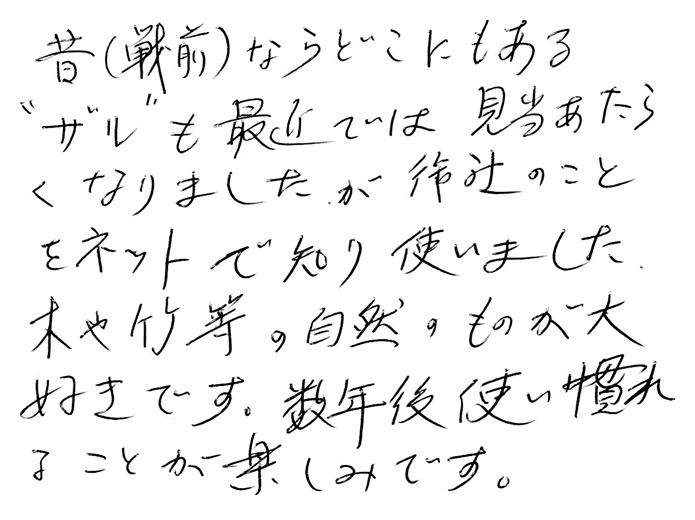 昔(戦前)ならどこにもある
"ザル"も最近では見当あたら
くなりましたが御社のこと
をネットで知り使いました.
木や竹等の自然のものが大
好きです。数年後使い慣れ
ることが楽しみです。